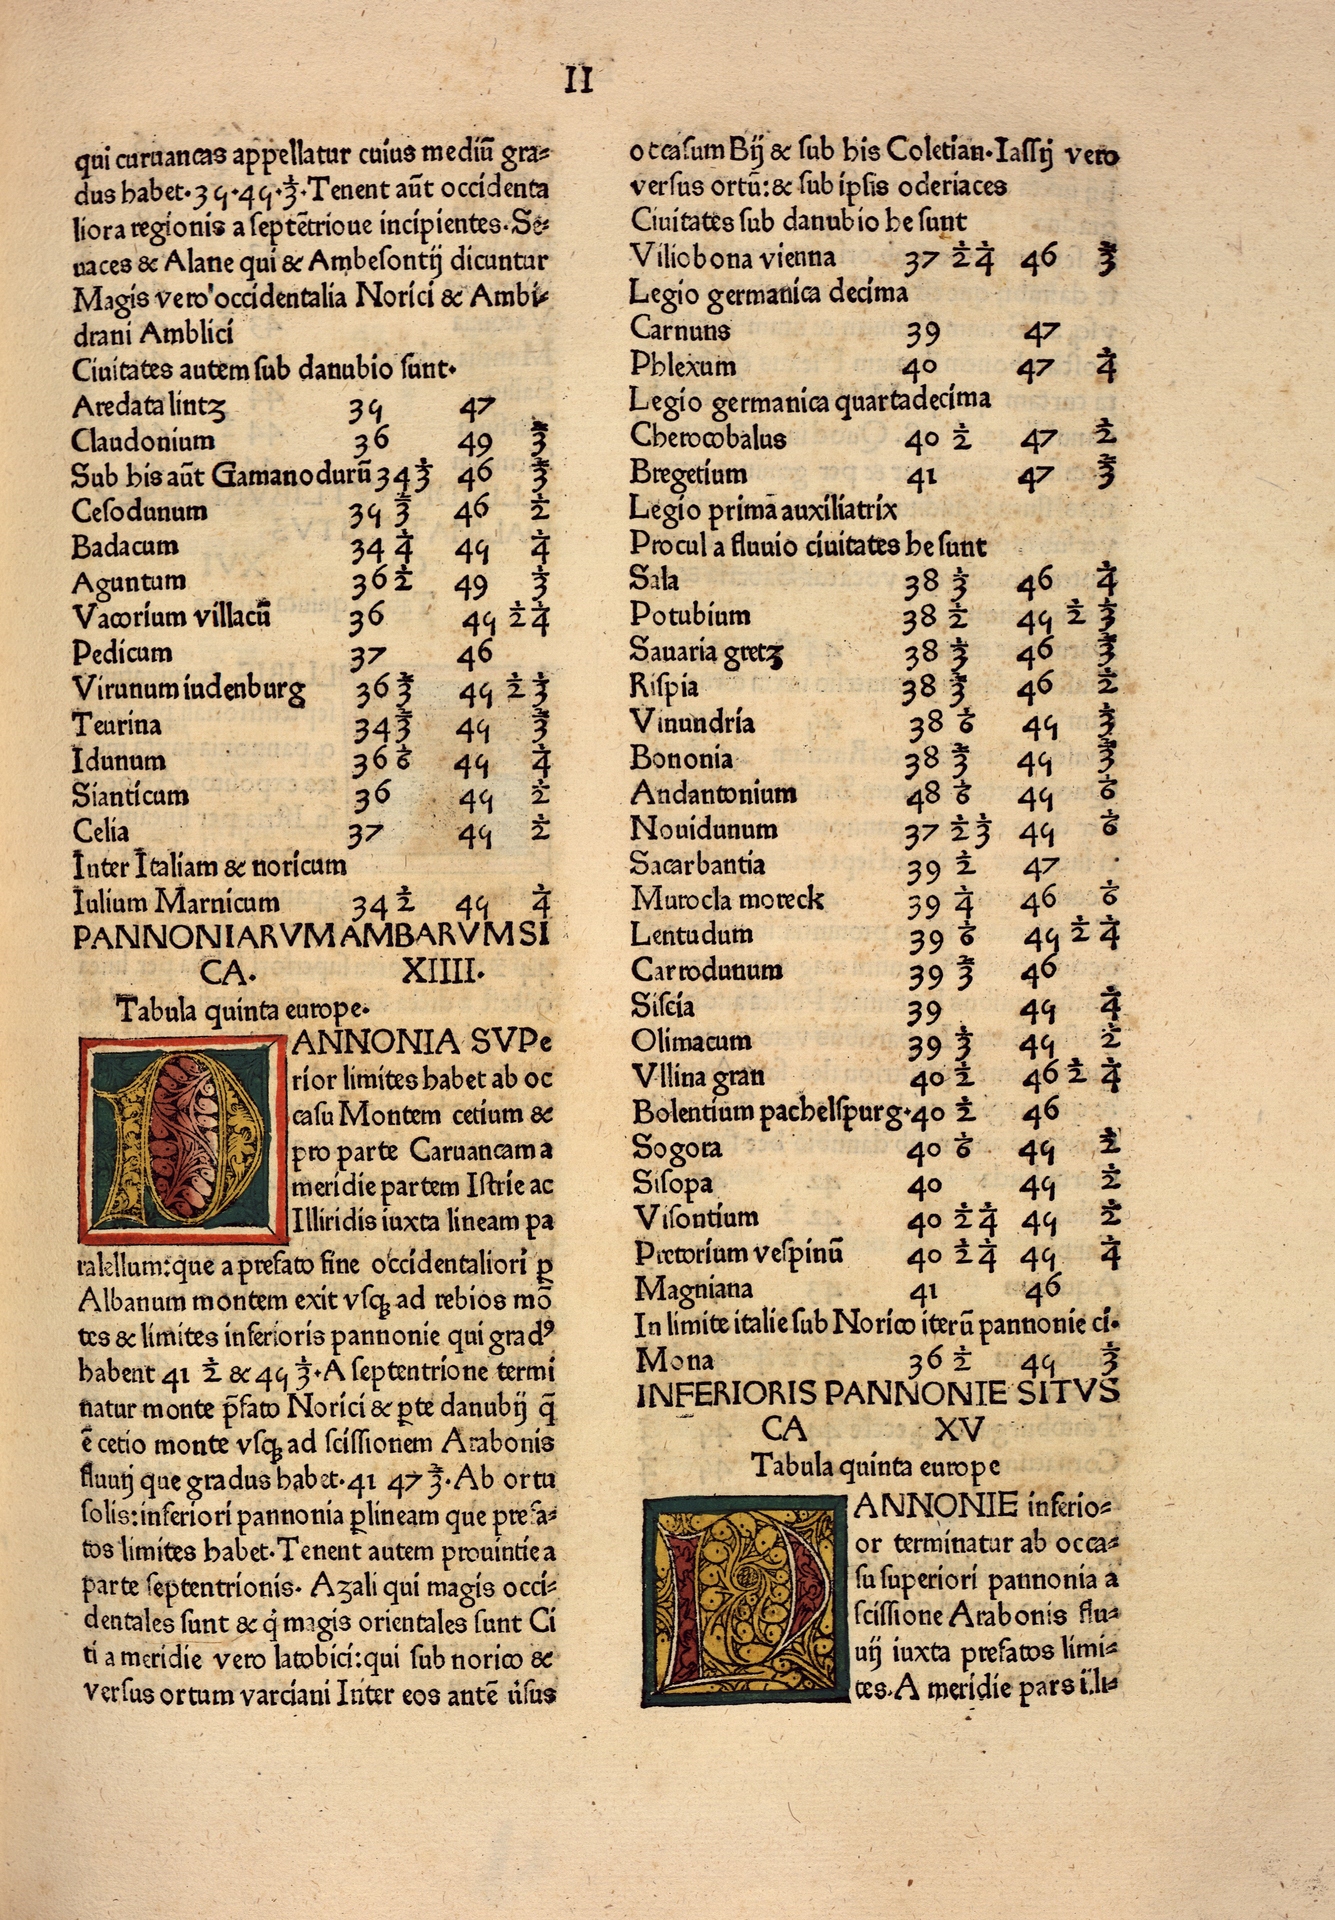 II
qui curuancas appellatur cuius mediū gra⸗
dus habet·35·45·⅓·Tenent aūt occidenta
liora regionis a ſeptētrioue incipientes·Se⸗
uaces & Alane qui & Ambeſontij dicuntur
Magis vero occidentalia Norici & Ambi⸗
drani Amblici
Ciuitates autem ſub danubio ſunt·
Aredata lintz 35 47
Claudonium 36 49 ⅔
Sub his aūt Gamanodurū 34 ⅓ 46 ⅔
Ceſodunum 35 ⅔ 46 ½
Badacum 34 ¼ 45 ¼
Aguntum 36 ½ 49 ⅓
Vacorium villacū 36 45 ½ ¼
Pedicum 37 46
Virunum iudenburg 36 ⅔ 45 ½ ⅓
Teurina 34 ⅔ 45 ⅔
Idunum 36 ⅙ 45 ¼
Sianticum 36 45 ½
Celia 37 45 ½
Inter Italiam & noricum
Iulium Marnicum 34 ½ 45 ¼
PANNONIARVM AMBARVM SI
CA· XIIII·
Tabula quinta europe·
PANNONIA SVPe
rior limites habet ab oc
caſu Montem cetium &
pro parte Caruancam a
meridie partem Iſtrie ac
Illiridis iuxta lineam pa
ralellum:que a prefato fine occidentaliori ꝑ
Albanum montem exit vſqꝫ ad rebios mō
tes & limites inferioris pannonie qui gradꝰ
habent 41 ½ & 45 ⅓·A ſeptentrione termi
natur monte p̄fato Norici & ꝑte danubij q̄
ē cetio monte vſqꝫ ad ſciſſionem Arabonis
fluuij que gradus habet·41 47 ⅔·Ab ortu
ſolis:inferiori pannonia ꝑlineam que prefa⸗
tos limites habet·Tenent autem prouintie a
parte ſeptentrionis· Azali qui magis occi⸗
dentales ſunt & q̇ magis orientales ſunt Ci
ti a meridie vero latobici:qui ſub norico &
verſus ortum varciani Inter eos antē ůſus
occaſum Bij & ſub his Coletian·Iaſſij vero
verſus ortū:& ſub ipſis oderiaces
Ciuitates ſub danubio he ſunt
Viliobona vienna 37 ½ ¼ 46 ⅔
Legio germanica decima
Carnuns 39 47
Phlexum 40 47 ¼
Legio germanica quartadecima
Cherocobalus 40 ½ 47 ½
Bregetium 41 47 ⅔
Legio primā auxiliatrix
Procul a fluuio ciuitates he ſunt
Sala 38 ⅓ 46 ¼
Potubium 38 ½ 45 ½ ⅓
Sauaria gretz 38 ⅓ 46 ⅔
Riſpia 38 ⅔ 46 ½
Vinundria 38 ⅙ 45 ⅔
Bononia 38 ⅔ 45 ⅔
Andantonium 48 ⅙ 45 ⅙
Nouidunum 37 ½ ⅓ 45 ⅙
Sacarbantia 39 ½ 47
Murocla moreck 39 ¼ 46 ⅙
Lentudum 39 ⅙ 45 ½ ¼
Carrodunum 39 ⅔ 46
Siſcia 39 45 ¼
Olimacum 39 ⅓ 45 ½
Vllina gran 40 ½ 46 ½ ¼
Bolentium pachelſpurg·40 ½ 46
Sogora 40 ⅙ 45 ½
Siſopa 40 45 ½
Viſontium 40 ½ ¼ 45 ½
Pretorium veſpinū 40 ½ ¼ 45 ¼
Magniana 41 46
In limite italie ſub Norico iterū pannonie ci·
Mona 36 ½ 45 ⅓
INFERIORIS PANNONIE SITVS
CA XV
Tabula quinta europe
PANNONIE inferio⸗
or terminatur ab occa⸗
ſu ſuperiori pannonia a
ſciſſione Arabonis flu⸗
uij iuxta prefatos limi⸗
tes·A meridie pars i.li⸗